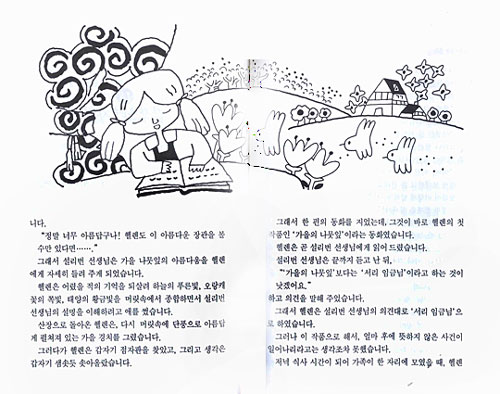 니다.
"정말 너무 아름답구나! 헬렌도 이 아름다운 장관을 볼
수만 있다면……."
그래서 설리번 선생님은 가을 나뭇잎의 아름다움을 헬렌
에게 자세히 들려 주게 되었습니다.
헬렌은 어렸을 적의 기억을 되살려 하늘의 푸른빛, 오랑캐
꽃의 쪽빛, 태양의 황금빛을 머릿속에서 종합하면서 설리번
선생님의 설명을 이해하려고 애를 썼습니다.
산장으로 돌아온 헬렌은, 다시 머릿속에 단풍으로 아름답
게 펼쳐져 있는 가을 경치를 그렸습니다.
그러다가 헬렌은 갑자기 점자판을 찾았고, 그리고 생각은
갑자기 샘솟듯 솟아올랐습니다.
그래서 한 편의 동화를 지었는데, 그것이 바로 헬렌의 첫
작품인 '가을의 나뭇잎'이라는 동화였습니다.
헬렌은 곧 설리번 선생님에게 읽어 드렸습니다.
설리번 선생님은 끝까지 듣고 난 뒤,
"'가을의 나뭇잎'보다는 '서리 임금님'이라고 하는 것이
낫겠어요."
하고 의견을 말해 주었습니다.
그래서 헬렌은 설리번 선생님의 의견대로 '서리 임금님'으
로 하였습니다.
그러나 이 작품으로 해서, 얼마 후에 뜻하지 않은 사건이
일어나리라고는 생각조차 못했습니다.
저녁 식사 시간이 되어 가족이 한 자리에 모였을 때, 헬렌